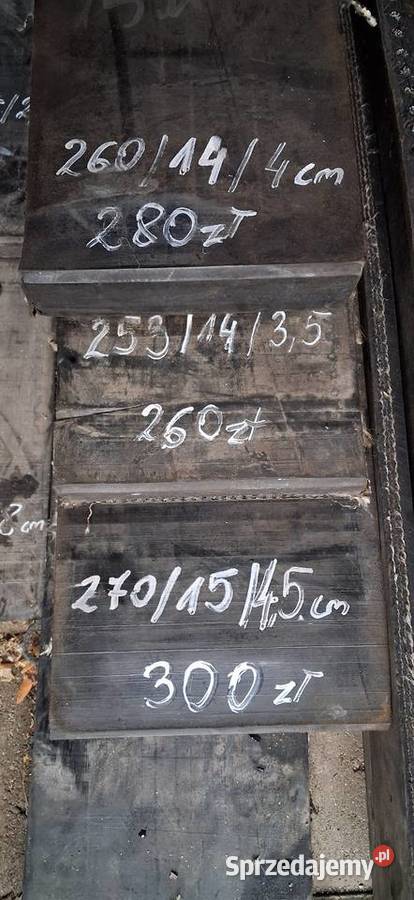 260/14/4cm
280zł
253/14/3,5
260zł
8cm
270/15/4,5cm
300zł
Sprzedajemy.pl